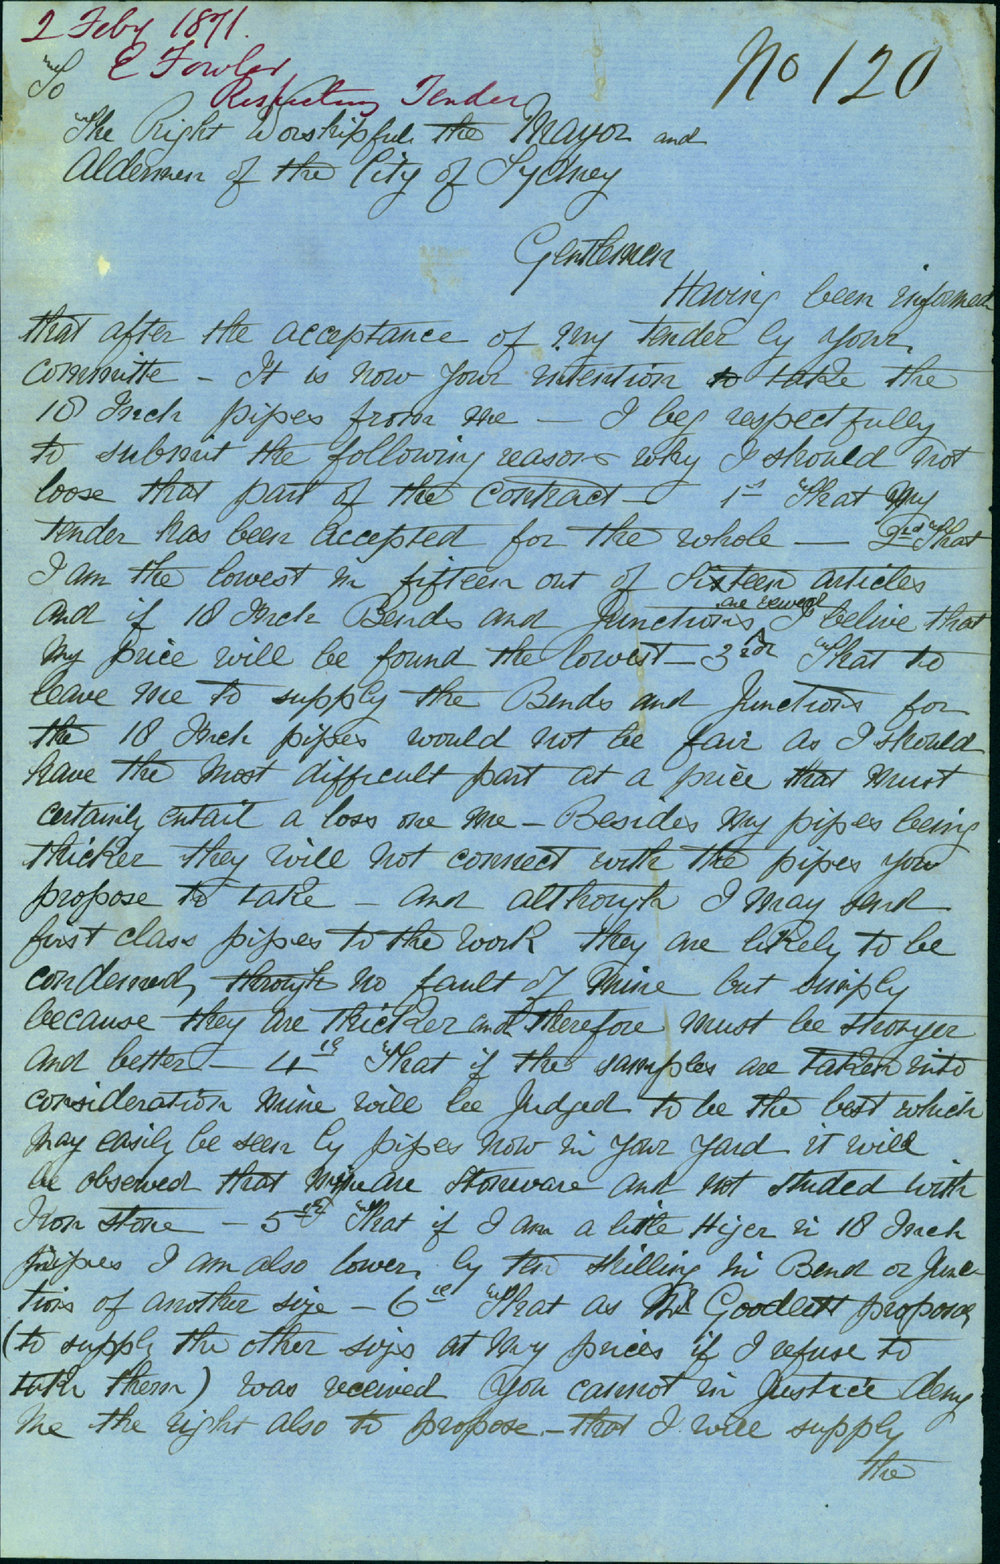 2 Feby 1871.
No 120
E Fowler
To
Respecting Tender
The Right Worshipful the Mayor and
Aldermen of the City of Sydney
Gentlemen
Having been informed
that after the acceptance of my tender by your
Committe - It is now your intention to take the
18 Inch pipes from me - I beg respectfully
to submit the following reasons why I should not
loose that part of the Contract - 1st That my
tender has been accepted for the whole - 2nd That
I am the lowest in fifteen out of Sixteen articles
and if 18 Inch Bends and Junctions are viewed I belive that
my price will be found the lowest - 3rd That to
leave me to supply the Bends and Junctions for
the 18 Inch pipes would not be fair as I should
have the most difficult part at a price that must
certainly entail a loss one me - Besides my pipes being
thicker they will not connect with the pipes you
propose to take - and although I may send
first class pipes to the work they are likely to be
condemned, through no fault of mine but simply
because they are thicker and therefore must be stronger
and better - 4th That if the samples are taken into
consideration mine will be Judged to be the best which
may easily be seen by pipes now in your yard it will
be observed that mine are stoneware and not studed with
Iron stone - 5th That if I am a little Higer in 18 Inch
pipes I am also lower by ten shilling in Bend or Junc-
tions of another size - 6th That as Mr Goodlett proposes
(to supply the other sizes at my prices if I refuse to
take them) was received you cannot in Justice deny
me the right also to propose - that I will supply
the